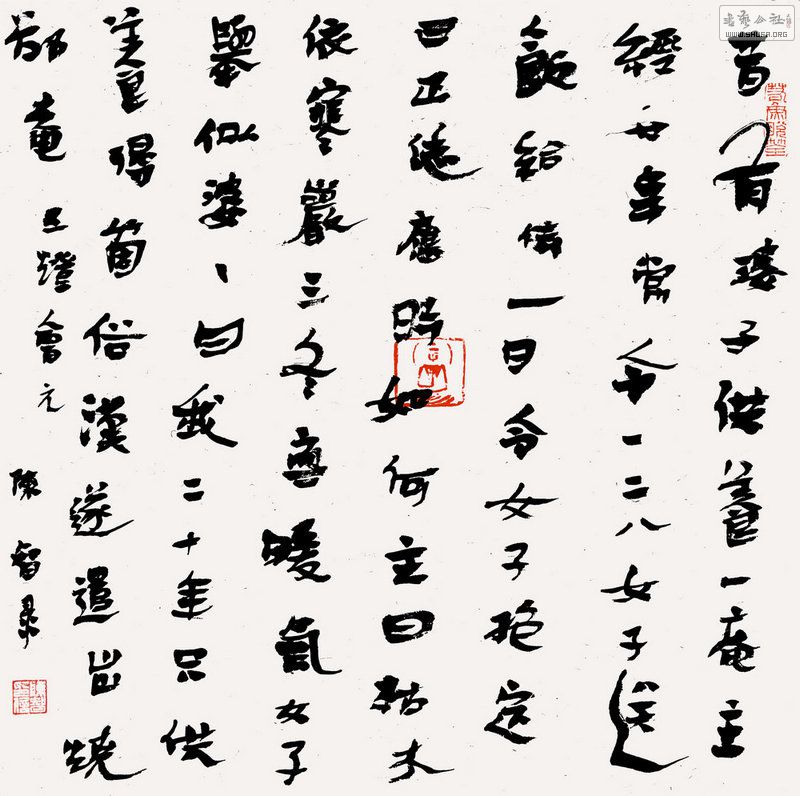 昔有婆子供養一庵主
經廿年常令一二八女子送
飯給侍一日令女子抱定
曰正恁麼時如何主曰枯木
依寒巖三冬無暖氣女子
舉似婆〻曰我二十年只供
養得箇俗漢遂遣出燒
卻庵 五燈會元 陳智
书艺公社
WWW.SHUSA.ORG